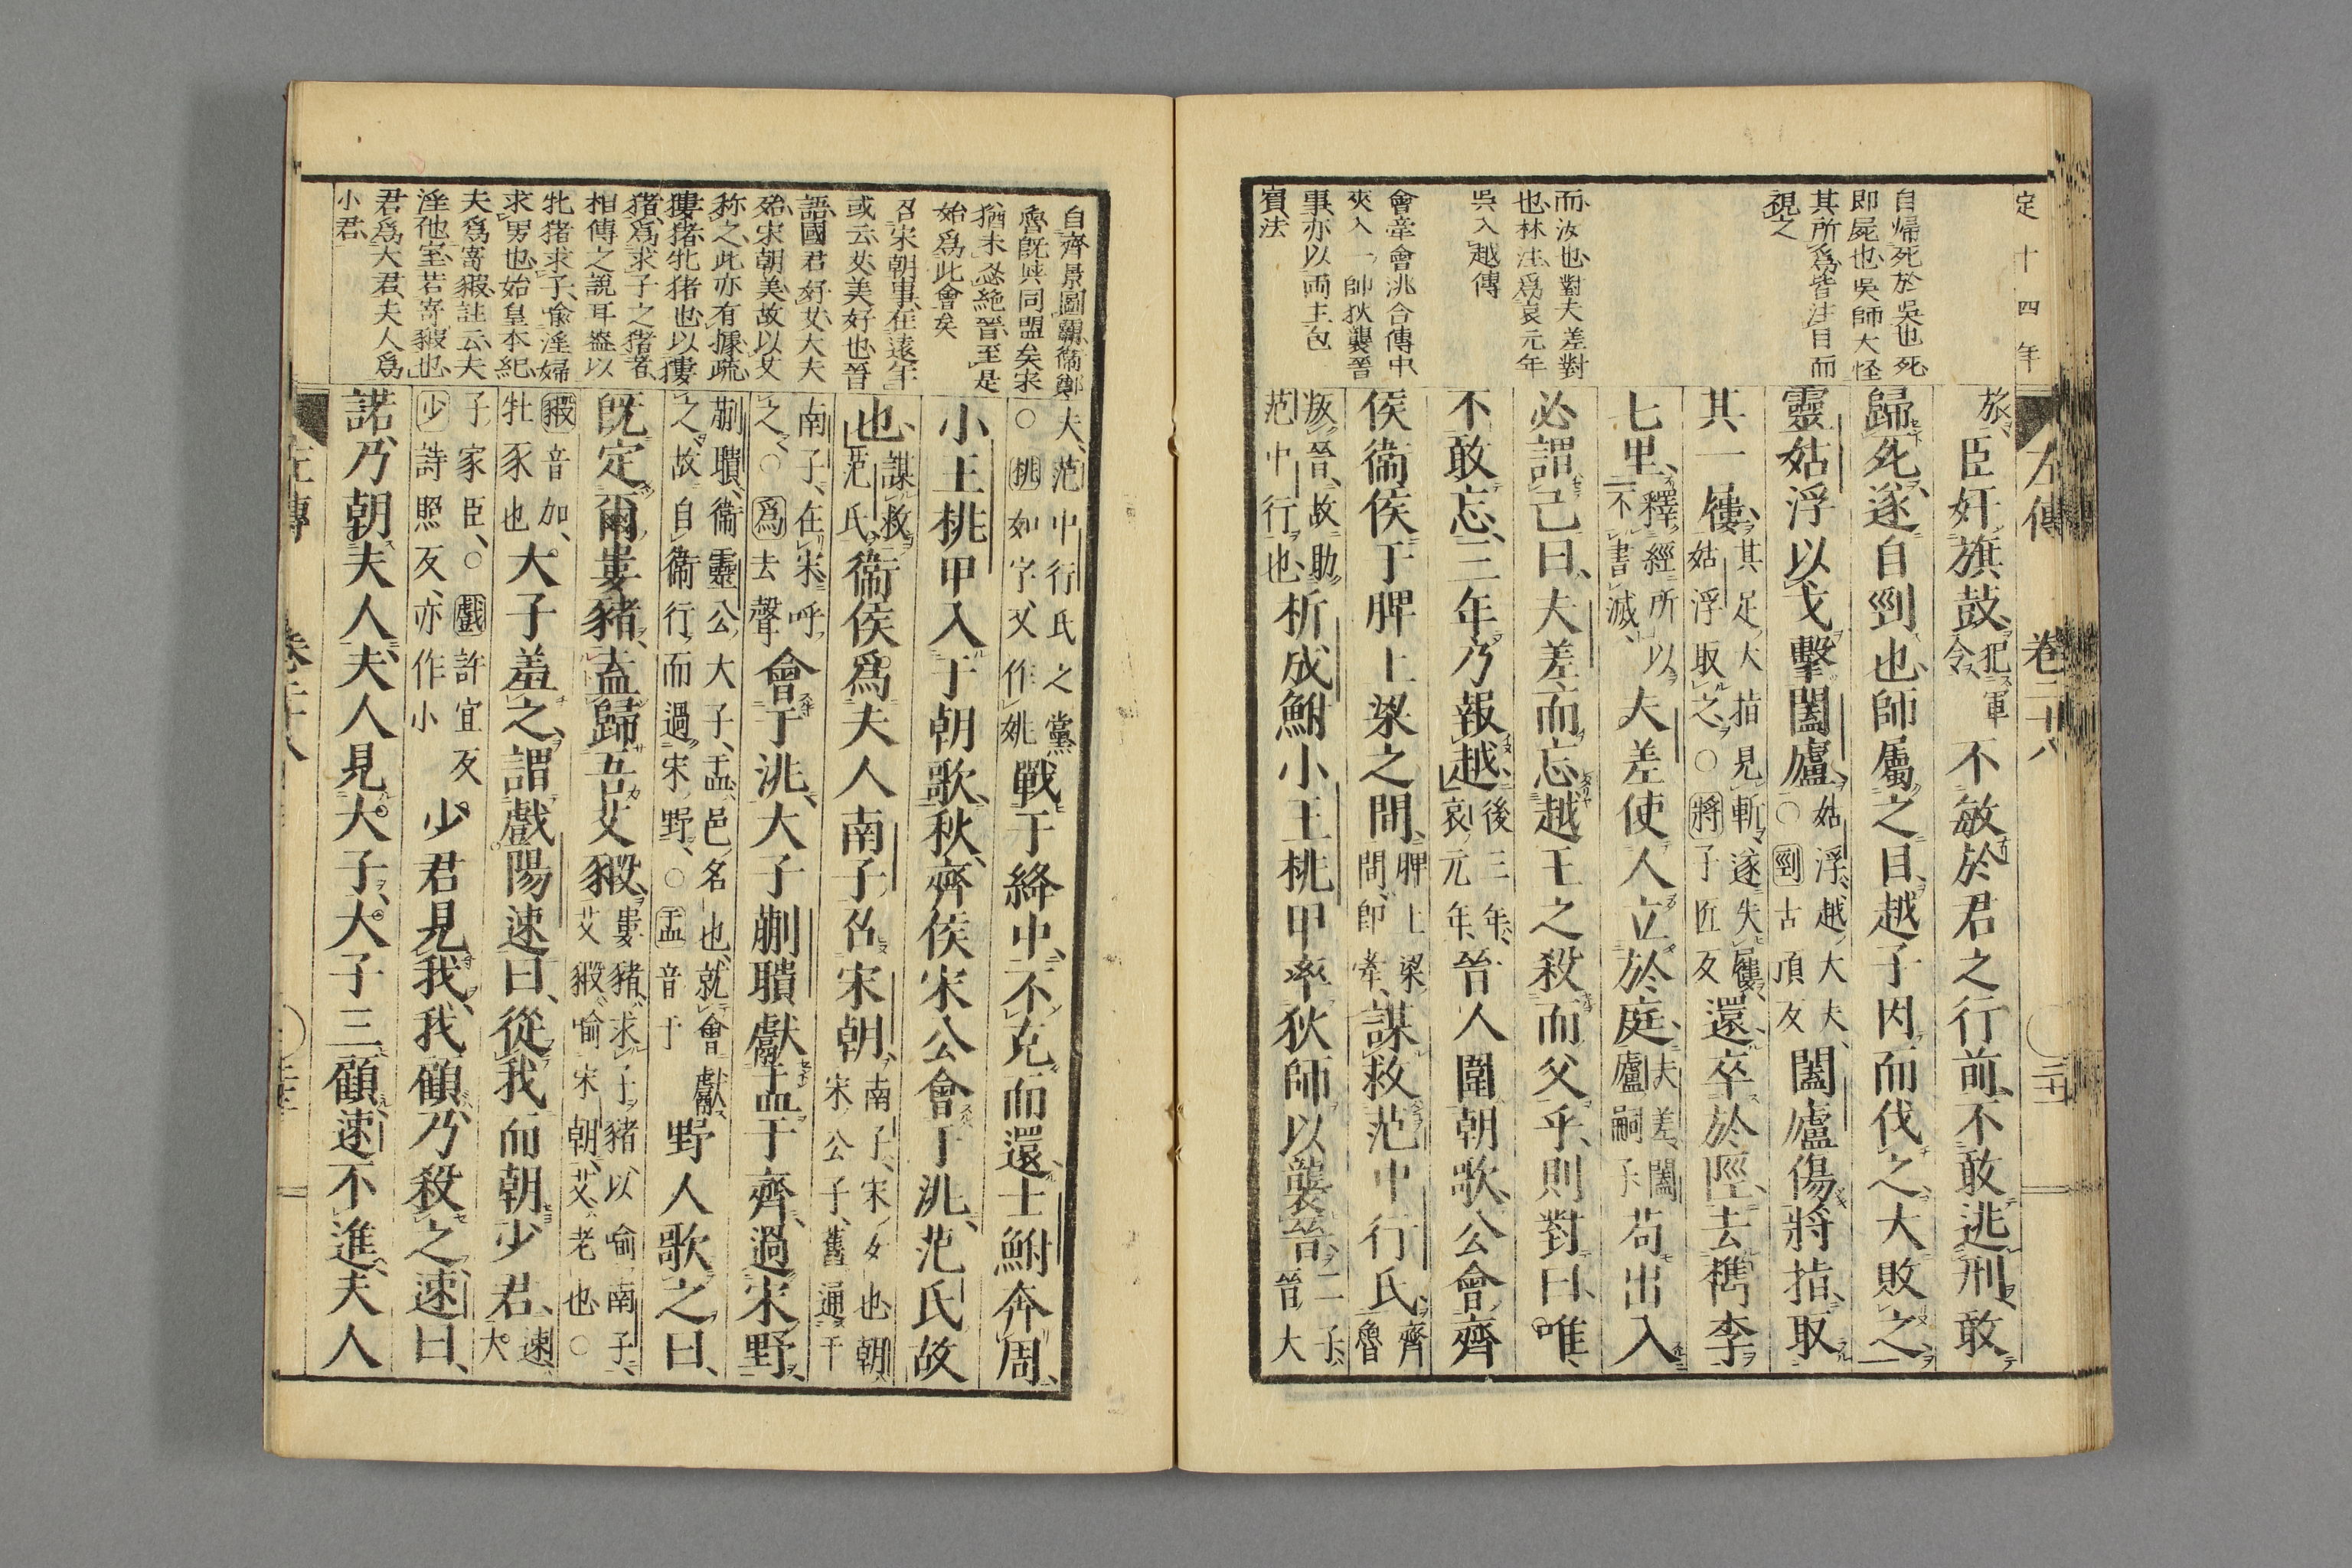 定十四年
自帰死於吳也死
即屍也吳師大怪
其所爲皆注目而
視之
而汝也對夫差對
也林注爲哀元年
吳入越傳
會牽會洮合傳中
夾入一師狄襲晉
事亦以兩主包
賓法
左傳 卷二十八
旅臣奸旗鼓犯軍令不敏於君之行前不敢逃刑敢
歸死遂自剄也師屬之目越子因而伐之大敗之
靈姑浮以戈擊闔廬姑浮越大夫○剄古頂反闔廬傷將指取
其一屨其足大指見斬遂失屨姑浮取之○將子匠反還卒於陘去檇李
七里釋經所以不書滅夫差使人立於庭夫差闔廬嗣子苟出入
必謂己曰夫差而忘越王之殺而父乎則對曰唯
不敢忘三年乃報越後三年哀元年晉人圍朝歌公會齊
侯衞侯于脾上梁之間脾上梁間即牽謀救范中行氏齊魯
叛晉故助范中行也析成鮒小王桃甲率狄師以襲晉二子晉大
自齊景圖霸衞鄭
魯旣與同盟矣宋
猶未忍絶晉至是
始爲此會矣
召宋朝事在遠年
或云女美好也晉
語國君好女大夫
殆宋朝美故以女
称之此亦有據疏
獹猪牝猪也以獹
猪爲求子之猪者
相傳之說耳盗以
牝猪求子喻淫婦
求男也始皇本紀
夫爲寄豭註云夫
淫他室若寄豭也
君爲大君夫人爲
小君
夫范中行氏之黨○桃如字又作姚戰于絳中不克而還士鮒奔周
小王桃甲入于朝歌秋齊侯宋公會于洮范氏故
也謀救范氏衞侯爲夫人南子召宋朝南子宋女也朝宋公子舊通于
南子在宋呼之○爲去聲會于洮大子蒯聵獻盂于齊過宋野
蒯聵衞靈公大子盂邑名也就會獻之故自衞行而過宋野○盂音于野人歌之曰
旣定爾婁豬盍歸吾艾豭婁豬求子豬以喻南子艾豭喻宋朝艾老也○
豭音加牡豕也大子羞之謂戲陽速曰從我而朝少君速大
子家臣○戲許宜反少詩照反亦作小少君見我我顧乃殺之速曰
諾乃朝夫人夫人見大子大子三顧速不進夫人